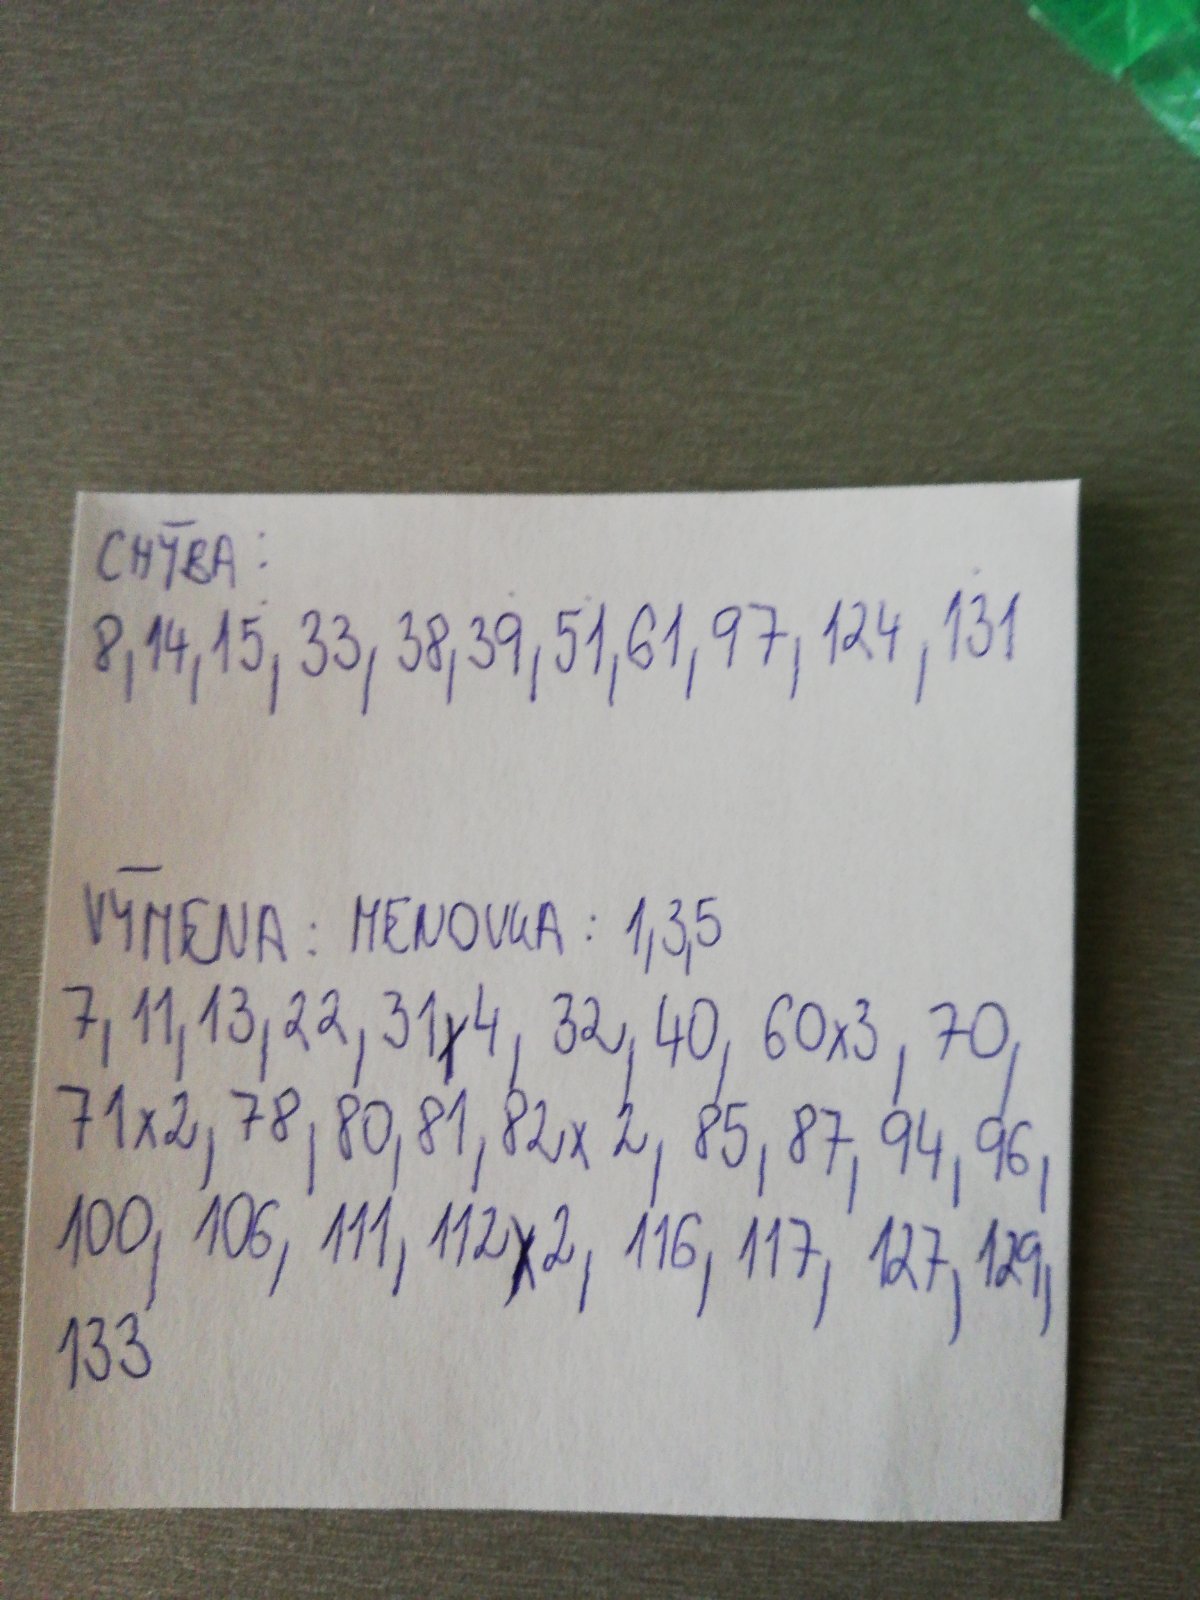 CHÝBA:
8, 14, 15, 33, 38, 39, 51, 61, 97, 124, 131
VÝMENA: MENOVKA: 1,3,5
7, 11, 13, 22, 31x4, 32, 40, 60x3, 70,
71x2, 78, 80, 81, 82x2, 85, 87, 94, 96,
100, 106, 111, 112x2, 116, 117, 127, 129,
133